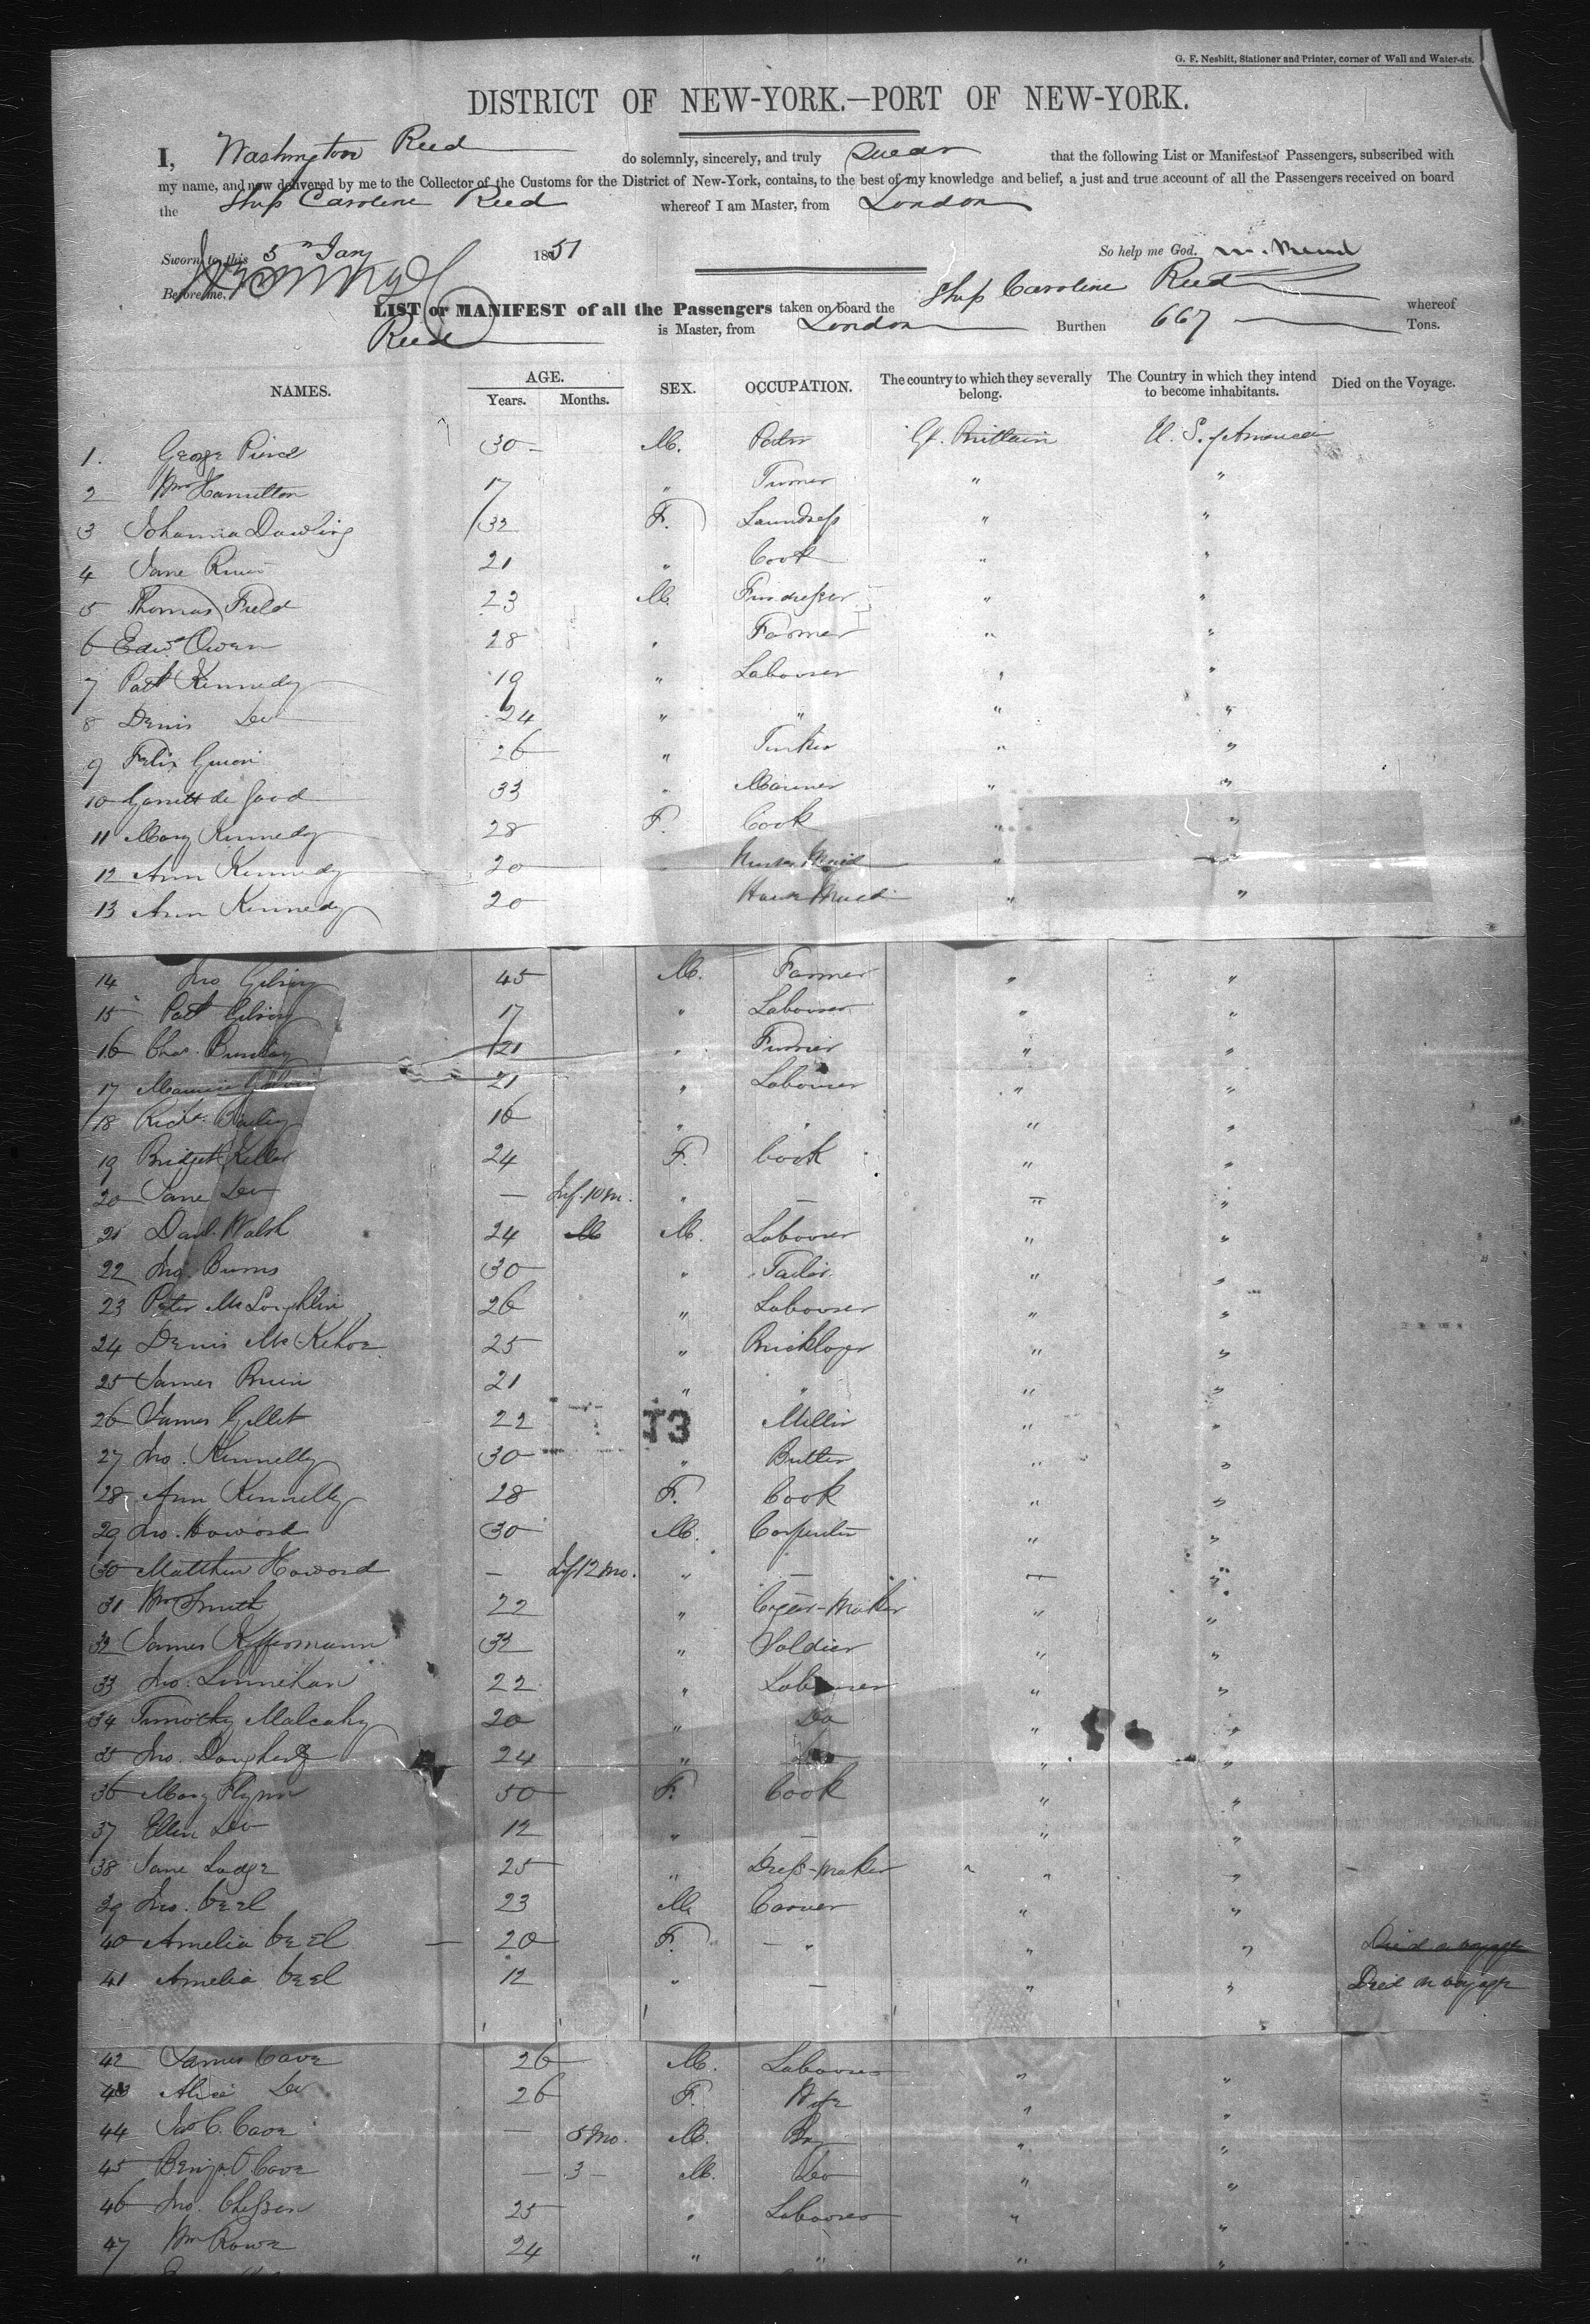 G. F. Nesbitt, Stationer and Printer, corner of Wall and Water-sts.
DISTRICT OF NEW-YORK.—PORT OF NEW-YORK.
I, Washington Reed do solemnly, sincerely, and truly swear that the following List or Manifest of Passengers, subscribed with
my name, and now delivered by me to the Collector of the Customs for the District of New-York, contains, to the best of my knowledge and belief, a just and true account of all the Passengers received on board
the Ship Caroline Reed whereof I am Master, from London
Sworn to this 5th Jany 1851 So help me God.
Before me,
LIST or MANIFEST of all the Passengers taken on board the Ship Caroline Reed whereof
Reed is Master, from London Burthen 667 Tons.
NAMES. AGE. Years. Months. SEX. OCCUPATION. The country to which they severally belong. The Country in which they intend to become inhabitants. Died on the Voyage.
1. George 30 M. Gt. Brittain U. S. of America
2 Wm Hamilton 17 " Turner " "
3 Johanna Dowling 32 F. Laundress " "
4 Jane 21 " Cook " "
5 Thomas Field 23 M. " "
6 Edwd Owen 28 " Farmer " "
7 Patk Kennedy 19 " Labourer " "
8 Denis Do 24 " " " "
9 Felix 26 " " "
10 Garrett de 33 " Mariner " "
11 Mary Kennedy 28 F. Cook " "
12 Ann Kennedy 20 Maid " "
13 Ann Kennedy 20 House Maid " "
14 Jno 45 M. Farmer " "
15 Patk 17 " Labourer " "
16 Chas. 21 " Furrier " "
17 Maurice 21 " Labourer " "
18 Richd. 16 " " " "
19 Bridget Keller 24 F. Cook " "
20 Jane Do — Inf. 10 m. " — " "
21 Danl. Walsh 24 M. Labourer " "
22 Jno. Burns 30 " Tailor " "
23 Peter McLoughlin 26 " Labourer " "
24 Denis McKehoe 25 " Bricklayer " "
25 James 21 " " " "
26 James Gillet 22 Miller " "
13
27 Jno. Kennelly 30 " Butler " "
28 Ann Kennelly 28 F. Cook " "
29 Jno. Howord 30 M. Carpenter " "
30 Matthew Howord — Inf 12 mo. " — " "
31 Wm Smith 22 " Cigar-Maker " "
32 James 32 " Soldier " "
33 Jno. Linnehan 22 " Labourer " "
34 Timothy Malcahy 20 " Do " "
35 Jno. Dougherty 24 " Do " "
36 Mary Flynn 50 F. Cook " "
37 Ellen Do 12 " — " "
38 Jane Lodge 25 " Dress-Maker " "
39 Jno. Ceel 23 M. Carver " "
40 Amelia Ceel 20 F. — " " " Died on voyage
41 Amelia Ceel 12 " — " " Died on voyage
42 James Cave 26 M. Labourer " "
43 Alice Do 26 F. Wife " "
44 Jno C. Cave — 5 mo. M. Boy " "
45 Benj. Cave — 3 — M. Do " "
46 Jno. 25 " Labourer " "
47 Wm Rowe 24 " " " "